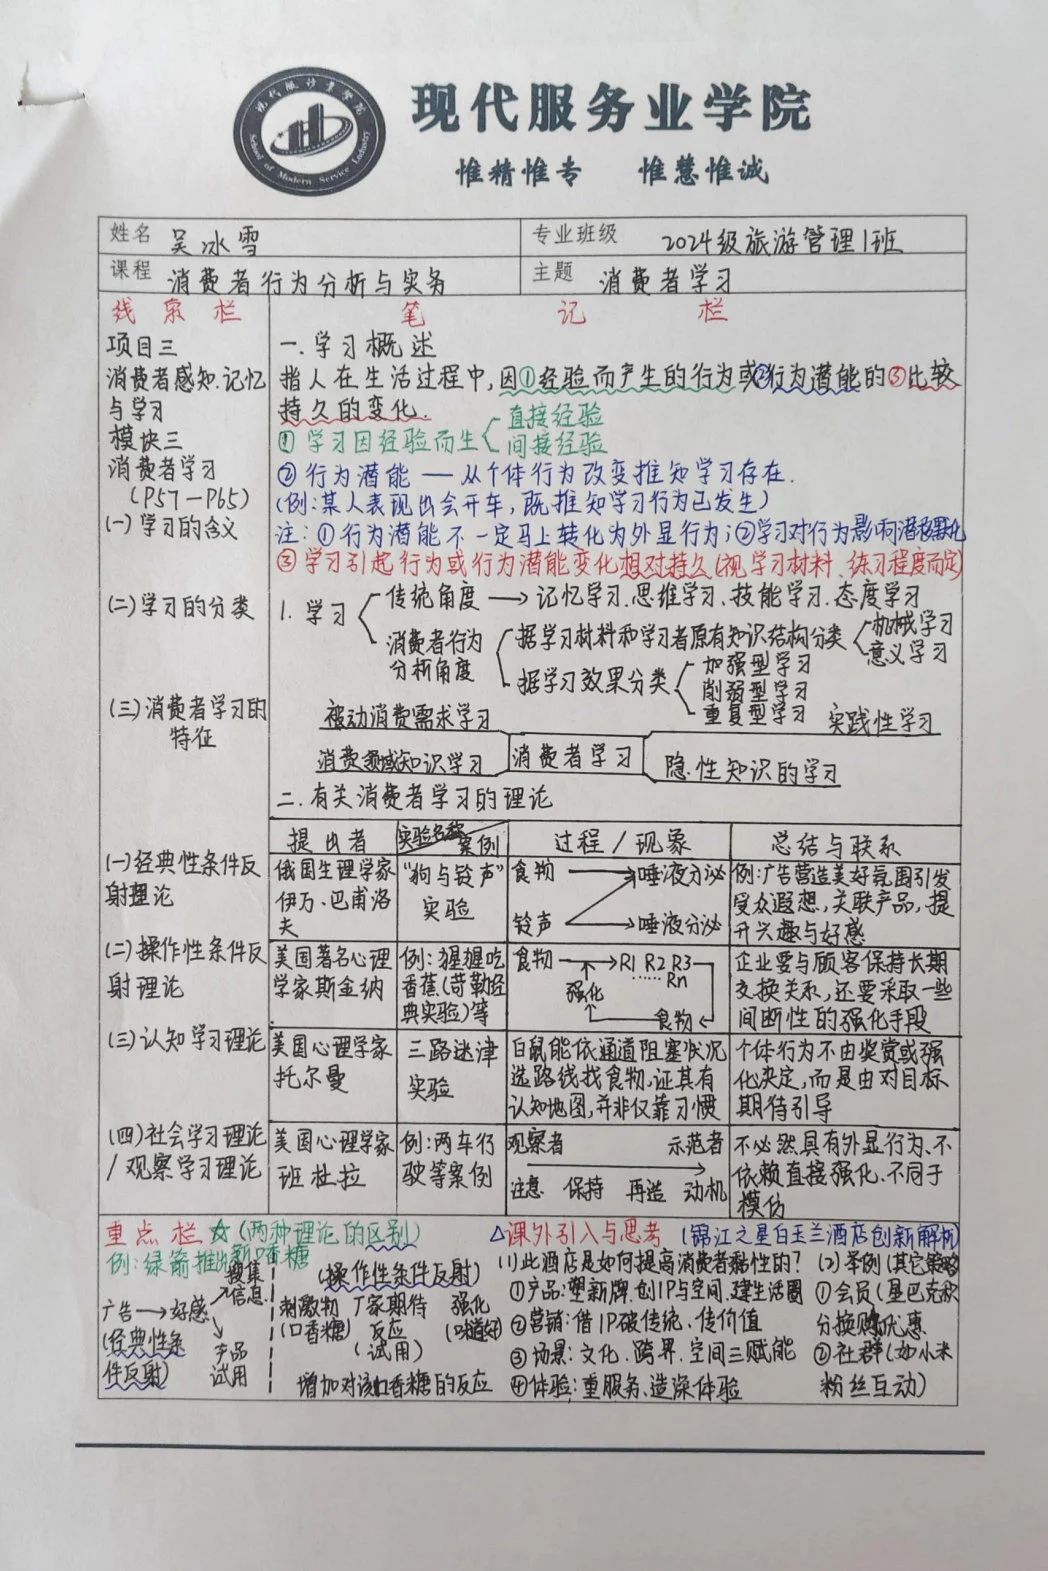 现代服务业学院
School of Modern Service Industry
现代服务业学院
惟精惟专 惟慧惟诚
姓名 吴冰雪 专业班级 2024级旅游管理1班
课程 消费者行为分析与实务 主题 消费者学习
线索栏 笔记栏
项目三
消费者感知.记忆
与学习
模块三
消费者学习
(P57—P65)
(一)学习的含义
(二)学习的分类
(三)消费者学习的
特征
一.学习概述
指人在生活过程中,因①经验而产生的行为或②行为潜能的③比较
持久的变化.
①学习因经验而生 直接经验
间接经验
②行为潜能 — 从个体行为改变推知学习存在.
(例:某人表现出会开车,既推知学习行为已发生)
注:①行为潜能不一定马上转化为外显行为;②学习对行为影响潜移默化
③学习引起行为或行为潜能变化相对持久(视学习材料.练习程度而定)
1.学习 传统角度 → 记忆学习.思维学习.技能学习.态度学习
消费者行为
分析角度
据学习材料和学习者原有知识结构分类 机械学习
意义学习
据学习效果分类 加强型学习
削弱型学习
重复型学习
被动消费需求学习 实践性学习
消费领域知识学习 消费者学习 隐性知识的学习
二.有关消费者学习的理论
提出者 实验名称/案例 过程/现象 总结与联系
(一)经典性条件反
射理论
俄国生理学家
伊万.巴甫洛
夫
"狗与铃声"
实验
食物 → 唾液分泌
铃声 → 唾液分泌
例:广告营造美好氛围引发
受众遐想,关联产品,提
升兴趣与好感
(二)操作性条件反
射理论
美国著名心理
学家斯金纳
例:猩猩吃
香蕉(苛勒经
典实验)等
食物 → R1 R2 R3
…… Rn
强化
食物
企业要与顾客保持长期
交换关系,还要采取一些
间断性的强化手段
(三)认知学习理论
美国心理学家
托尔曼
三路迷津
实验
白鼠能依通道阻塞状况
选路线找食物,证其有
认知地图,并非仅靠习惯
个体行为不由奖赏或强
化决定,而是由对目标
期待引导
(四)社会学习理论
/观察学习理论
美国心理学家
班杜拉
例:两车行
驶等案例
观察者 示范者
注意 保持 再造 动机
不必然具有外显行为、不
依赖直接强化、不同于
模仿
重点栏☆(两种理论的区别)
例:绿箭推出新口香糖
广告 → 好感 搜集
信息
产品
试用
(经典性条
件反射)
(操作性条件反射)
刺激物 厂家期待 强化
(口香糖) 反应
(试用)
增加对该口香糖的反应
△课外引入与思考 (锦江之星白玉兰酒店创新解析)
(1)此酒店是如何提高消费者黏性的?
①产品:塑新牌.创IP与空间.建生活圈
②营销:借IP破传统.传价值
③场景:文化.跨界.空间三赋能
④体验:重服务.造深体验
(2)举例(其它策略
①会员(星巴克积
分换购优惠
②社群(如小米
粉丝互动)